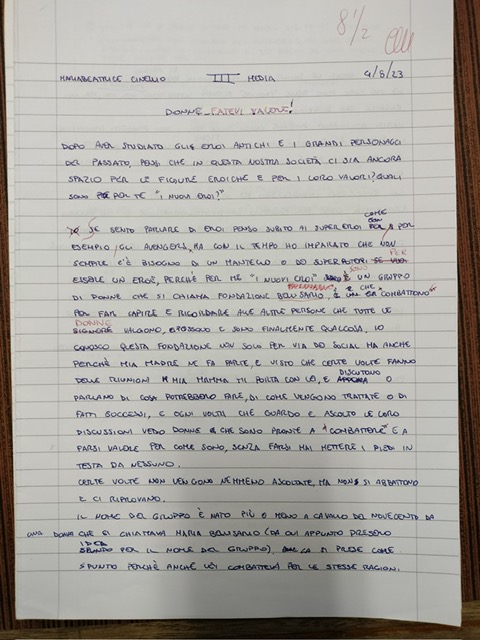 8 1/2
MARIABEATRICE CINELLO III MEDIA 4/8/23
DONNE FATEVI VALERE!
DOPO AVER STUDIATO GLI EROI ANTICHI E I GRANDI PERSONAGGI
DEL PASSATO, PENSI CHE IN QUESTA NOSTRA SOCIETÀ CI SIA ANCORA
SPAZIO PER LE FIGURE EROICHE E PER I LORO VALORI? QUALI
SONO PER TE "I NUOVI EROI?"
SE SENTO PARLARE DI EROI PENSO SUBITO AI SUPER EROI COME PER
ESEMPIO GLI AVENGERS, MA CON IL TEMPO HO IMPARATO CHE NON
SEMPRE C'È BISOGNO DI UN MANTELLO O DEI SUPERPOTERI PER
ESSERE UN EROE, PERCHÈ PER ME "I NUOVI EROI" SONO UN GRUPPO
DI DONNE CHE SI CHIAMA FONDAZIONE BELLISARIO, E CHE COMBATTONO
PER FAR CAPIRE E RICORDARE ALLE ALTRE PERSONE CHE TUTTE LE
DONNE VALGONO, POSSONO E SONO FINALMENTE QUALCOSA, IO
CONOSCO QUESTA FONDAZIONE NON SOLO PER VIA DEI SOCIAL MA ANCHE
PERCHÈ MIA MADRE NE FA PARTE, E VISTO CHE CERTE VOLTE FANNO
DELLE RIUNIONI MIA MAMMA MI PORTA CON LEI, E DISCUTONO O
PARLANO DI COSA POTREBBERO FARE, DI COME VENGONO TRATTATE O DI
FATTI SUCCESSI, E OGNI VOLTA CHE GUARDO E ASCOLTO LE LORO
DISCUSSIONI VEDO DONNE CHE SONO PRONTE A "COMBATTERE" E A
FARSI VALERE PER COME SONO, SENZA FARSI MAI METTERE I PIEDI IN
TESTA DA NESSUNO.
CERTE VOLTE NON VENGONO NEMMENO ASCOLTATE, MA NON SI ABBATTONO
E CI RIPROVANO.
IL NOME DEL GRUPPO È NATO PIÙ O MENO A CAVALLO DEL NOVECENTO DA
UNA DONNA CHE SI CHIAMAVA MARIA BELLISARIO (DA CUI APPUNTO PRESERO
IDEA PER IL NOME DEL GRUPPO), SI PRESE COME
SPUNTO PERCHÈ ANCHE LEI COMBATTEVA PER LE STESSE RAGIONI.